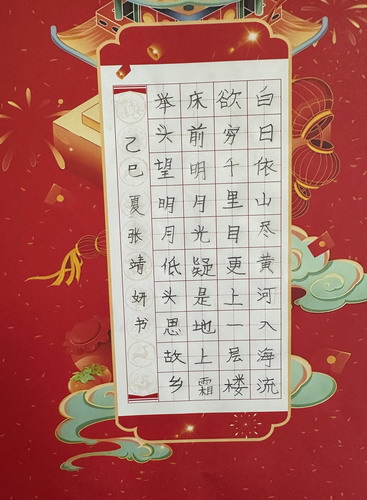 白日依山尽黄河入海流
欲穷千里目更上一层楼
床前明月光疑是地上霜
举头望明月低头思故乡
乙巳夏张靖妍书